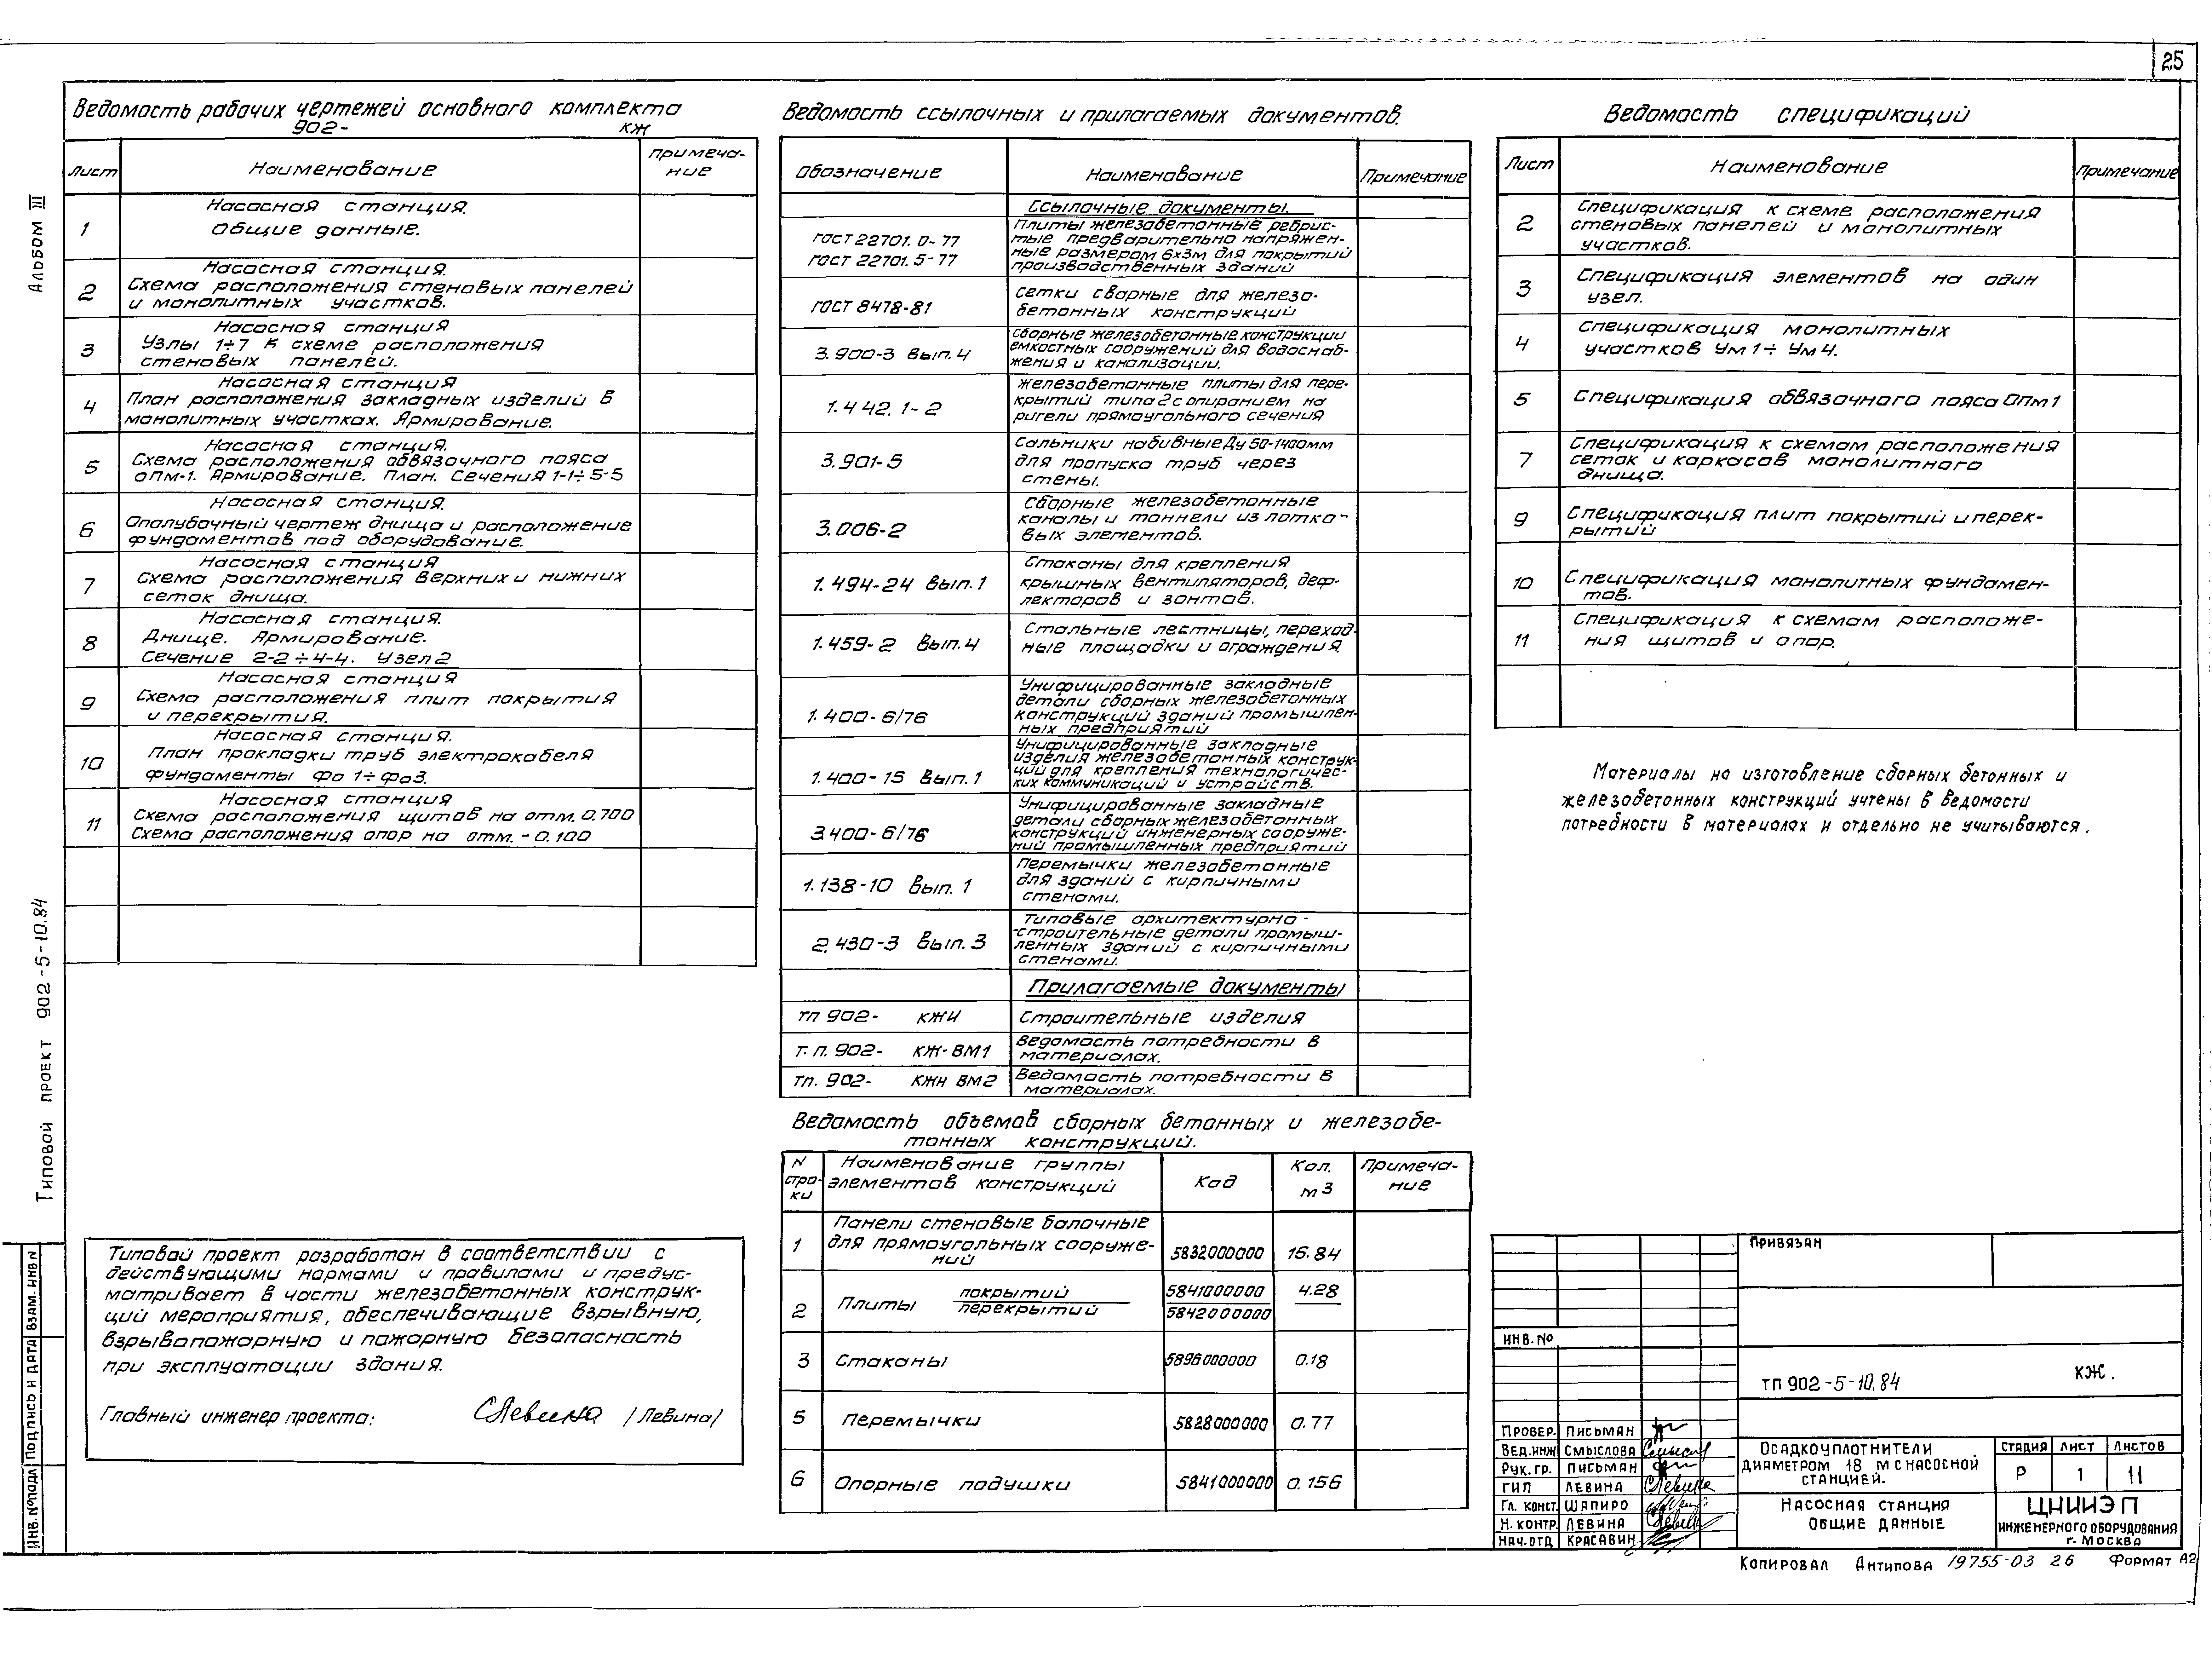 25
Альбом III
Типовой проект 902-5-10.84
Взам. инв N
Подпись и дата
Инв. № подл
Ведомость рабочих чертежей основного комплекта
902- КЖ
Лист Наименование Примеча-
ние
Насосная станция.
1 Общие данные.
Насосная станция.
2 Схема расположения стеновых панелей
и монолитных участков.
Насосная станция
3 Узлы 1÷7 к схеме расположения
стеновых панелей.
Насосная станция
4 План расположения закладных изделий в
монолитных участках. Армирование.
Насосная станция.
5 Схема расположения обвязочного пояса
ОПм-1. Армирование. План. Сечения 1-1÷5-5
Насосная станция.
6 Опалубочный чертеж днища и расположение
фундаментов под оборудование.
Насосная станция
7 Схема расположения верхних и нижних
сеток днища.
Насосная станция.
8 Днище. Армирование.
Сечение 2-2÷4-4. Узел 2
Насосная станция
9 Схема расположения плит покрытия
и перекрытия.
Насосная станция.
10 План прокладки труб электрокабеля
фундаменты Фо 1÷Фо3.
Насосная станция
11 Схема расположения щитов на отм. 0.700
Схема расположения опор на отм. -0.100
Типовой проект разработан в соответствии с
действующими нормами и правилами и предус-
матривает в части железобетонных конструк-
ций мероприятия, обеспечивающие взрывную,
взрывопожарную и пожарную безопасность
при эксплуатации здания.
Главный инженер проекта: СЛевина /Левина/
Ведомость ссылочных и прилагаемых документов.
Обозначение Наименование Примечание
Ссылочные документы.
ГОСТ 22701.0-77
ГОСТ 22701.5-77
Плиты железобетонные ребрис-
тые предварительно напряжен-
ные размером 6х3м для покрытий
производственных зданий
ГОСТ 8478-81 Сетки сварные для железо-
бетонных конструкций
3.900-3 Вып. 4 Сборные железобетонные конструкции
емкостных сооружений для водоснаб-
жения и канализации.
1.442.1-2 Железобетонные плиты для пере-
крытий типа 2 с опиранием на
ригели прямоугольного сечения
3.901-5 Сальники набивные Ду 50-1400мм
для пропуска труб через
стены.
3.006-2 Сборные железобетонные
каналы и тоннели из лотко-
вых элементов.
1.494-24 Вып. 1 Стаканы для крепления
крышных вентиляторов, деф-
лекторов и зонтов.
1.459-2 Вып. 4 Стальные лестницы, переход-
ные площадки и ограждения
1.400-6/76 Унифицированные закладные
детали сборных железобетонных
конструкций зданий промышлен-
ных предприятий
1.400-15 Вып. 1 Унифицированные закладные
изделия железобетонных конструк-
ций для крепления технологичес-
ких коммуникаций и устройств.
3.400-6/76 Унифицированные закладные
детали сборных железобетонных
конструкций инженерных сооруже-
ний промышленных предприятий
1.138-10 Вып. 1 Перемычки железобетонные
для зданий с кирпичными
стенами.
2.430-3 Вып. 3 Типовые архитектурно-
-строительные детали промыш-
ленных зданий с кирпичными
стенами.
Прилагаемые документы
ТП 902- КЖИ Строительные изделия
Т.П. 902- КЖ-ВМ1 Ведомость потребности в
материалах.
ТП. 902- КЖИ ВМ2 Ведомость потребности в
материалах.
Ведомость объемов сборных бетонных и железобе-
тонных конструкций.
N
стро-
ки
Наименование группы
элементов конструкций
Код
Кол.
м3
Примеча-
ние
Панели стеновые балочные
1 для прямоугольных сооруже- 5832000000 16.84
ний
2 Плиты покрытий 5841000000 4.28
перекрытий 5842000000
3 Стаканы 5896000000 0.18
5 Перемычки 5828000000 0.77
6 Опорные подушки 5841000000 0.156
Ведомость спецификаций
Лист Наименование Примечание
2 Спецификация к схеме расположения
стеновых панелей и монолитных
участков.
3 Спецификация элементов на один
узел.
4 Спецификация монолитных
участков Ум 1÷Ум 4.
5 Спецификация обвязочного пояса ОПм1
7 Спецификация к схемам расположения
сеток и каркасов монолитного
днища.
9 Спецификация плит покрытий и перек-
рытий
10 Спецификация монолитных фундамен-
тов.
11 Спецификация к схемам расположе-
ния щитов и опор.
Материалы на изготовление сборных бетонных и
железобетонных конструкций учтены в ведомости
потребности в материалах и отдельно не учитываются.
Привязан
Инв. №
ТП 902-5-10.84 КЖ.
Провер. Письман
Вед.инж Смыслова
Рук. гр. Письман
ГИП Левина
Гл. конст. Шапиро
Н. контр. Левина
Нач. отд Красавин
Осадкоуплотнители
диаметром 18 м с насосной
станцией.
Стадия Лист Листов
Р 1 11
Насосная станция
Общие данные
ЦНИИЭП
инженерного оборудования
г. Москва
Копировал Антипова 19755-03 26 Формат А2